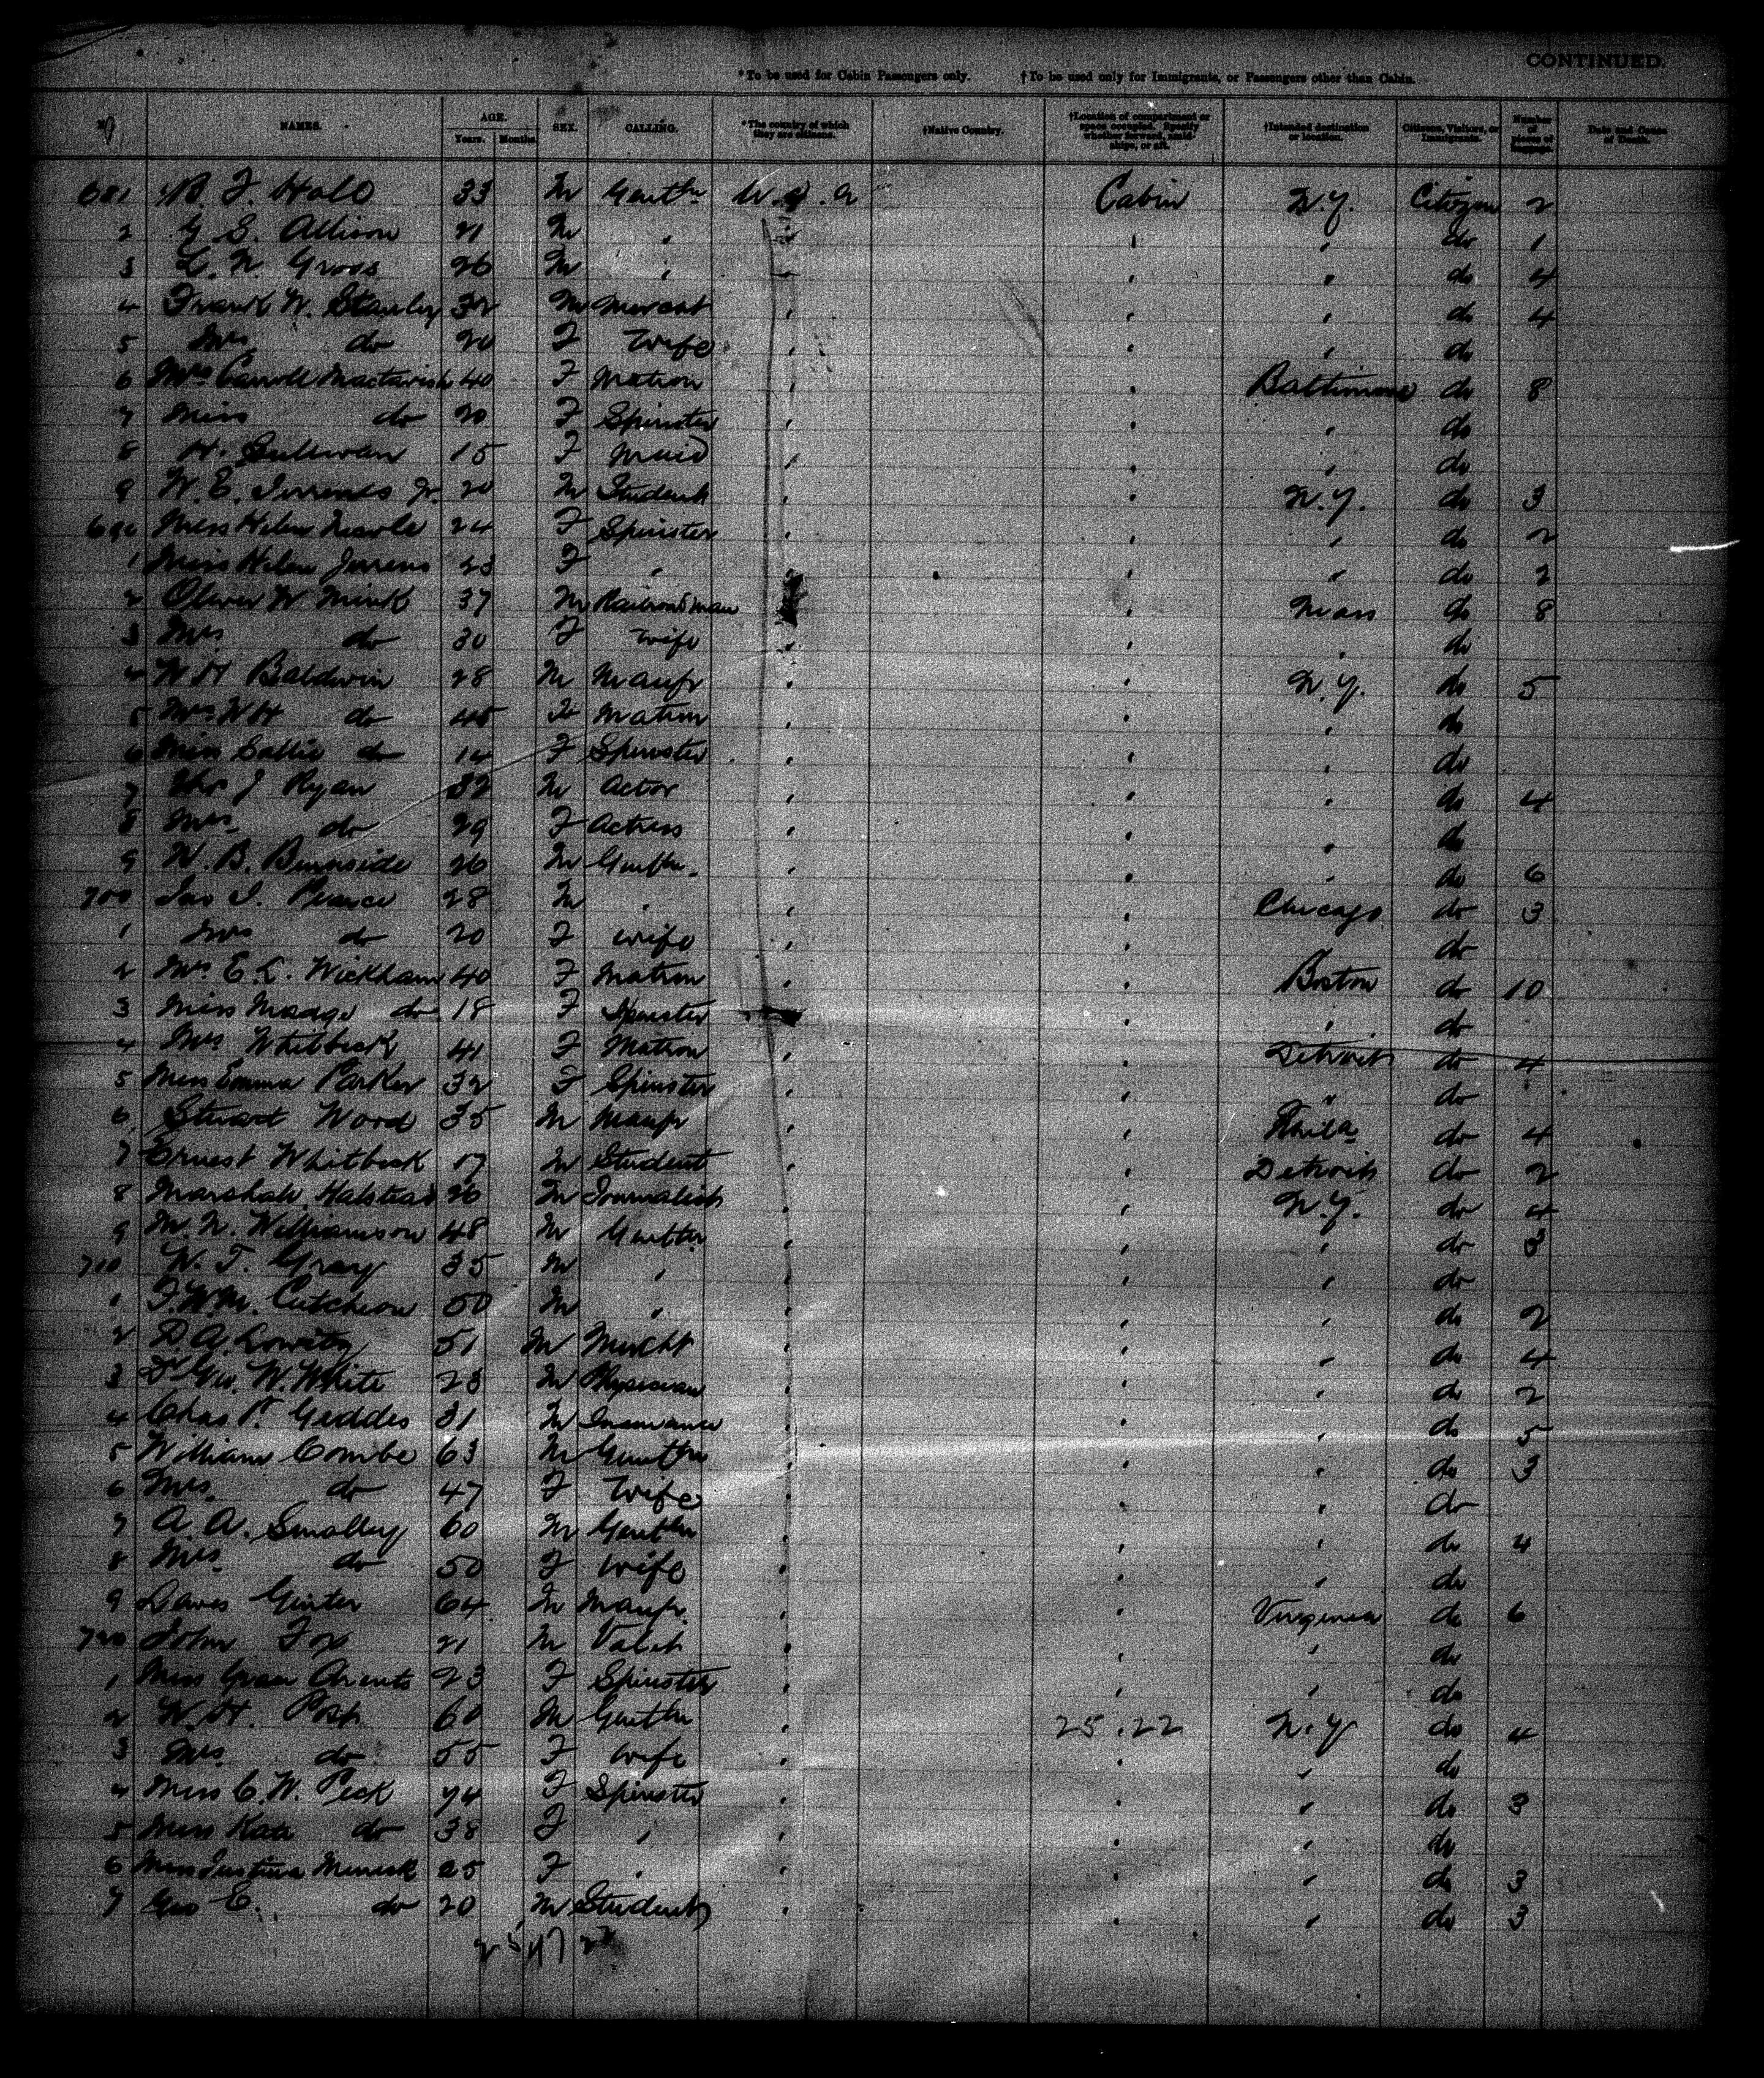 CONTINUED.
*To be used for Cabin Passengers only. †To be used only for Immigrants, or Passengers other than Cabin.
NAMES. AGE. Years. Months. SEX. CALLING. *The country of which they are citizens. †Native Country. †Location of compartment or space occupied. Specify whether forward, amidships, or aft. †Intended destination or location. Citizens, Visitors, or Immigrants. Number of pieces of baggage. Date and Cause of Death.
681 F. Hale 33 M Gentln U.S.A Cabin N.Y. Citizen 2
2 G S. Allison 21 M " " " " do 1
3 Gross 26 M " " " " do 4
4 Frank W. Stanley 32 M Mercat " " " do 4
5 Mrs do 20 F Wife " " " do
6 Mrs Carroll Mactavish 40 F Matron " " Baltimore do 8
7 Miss do 20 F Spinster " " " do
8 H. Sullivan 15 F Maid " " " do
9 W. E. Jr. 20 M Student " " N.Y. do 3
690 Miss Helen 24 F Spinster " " " do 2
1 Miss Helen 23 F " " " " do 2
2 Oliver W Mink 37 M Railroad man " " Mass do 8
3 Mrs do 30 F Wife " " " do
4 W H Baldwin 28 M Manfr " " N.Y. do 5
5 Mrs W H do 45 F Matron " " " do
6 Miss Sallie do 14 F Spinster " " " do
7 Thos J Ryan 32 M Actor " " " do 4
8 Mrs do 29 F Actress " " " do
9 W. B. Burnside 26 M Gentln. " " " do 6
700 Pearce 28 M " " " Chicago do 3
1 Mrs do 20 F Wife " " " do
2 Mrs E. L. Wickham 40 F Matron " " Boston do 10
3 Miss Madge do 18 F Spinster " " " do
4 Mrs Whitbeck 41 F Matron " " Detroit do 4
5 Miss Emma Parker 32 F Spinster " " " do
6 Stuart Wood 35 M Manfr " " Phila do 4
7 Ernest Whitbeck 17 M Student " " Detroit do 2
8 Marshall Halstead 26 M Journalist " " N.Y. do 4
9 M. N. Williamson 48 M Gentln " " " do 3
710 W. T. Gray 35 M " " " " do
1 Cutcheon 50 M " " " " do 2
2 D A. 51 M Mercht " " " do 4
3 Dr Geo. W. White 23 M Physician " " " do 2
4 Chas P. Geddes 31 M Insurance " " " do 5
5 William Combe 63 M Gentln " " " do 3
6 Mrs do 47 F Wife " " " do
7 A. A. Smalley 60 M Gentln " " " do 4
8 Mrs do 50 F Wife " " " do
9 Ginter 64 M Manfr. " " Virginia do 6
720 John Fox 21 M Valet " " " do
1 Miss Grace Arents 23 F Spinster " " " do
2 W. H. 60 M Gentln " 25.22 N.Y do 4
3 Mrs do 55 F Wife " " " do
4 Miss C. W. Peck 74 F Spinster " " " do 3
5 Miss Kate do 38 F " " " " do
6 Miss 25 F " " " " do 3
7 Geo E. do 20 M Student " " " do 3